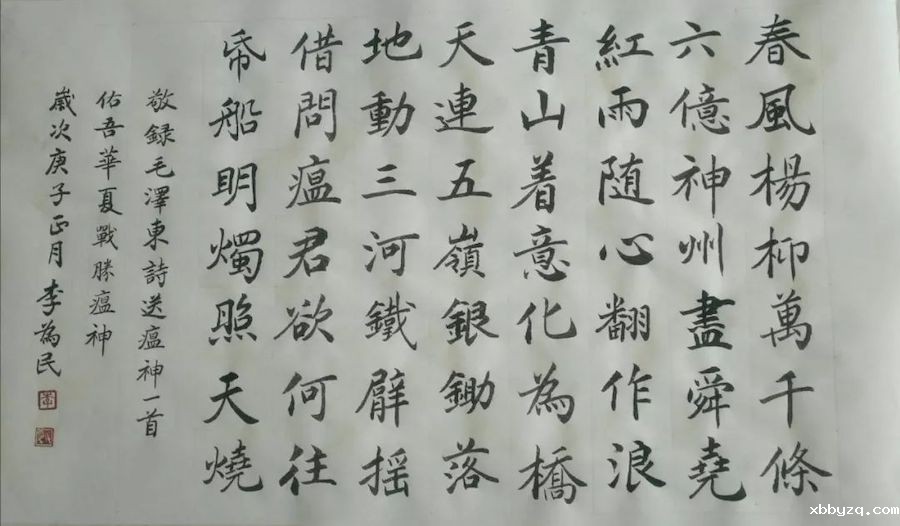 春風楊柳萬千條
六億神州盡舜堯
紅雨随心翻作浪
青山着意化為橋
天連五嶺銀鋤落
地動三河鐵臂揺
借問瘟君欲何往
帋船明燭照天燒
敬録毛澤東詩送瘟神一首
佑吾華夏戰勝瘟神
歲次庚子正月李為民
xbbyzq.com